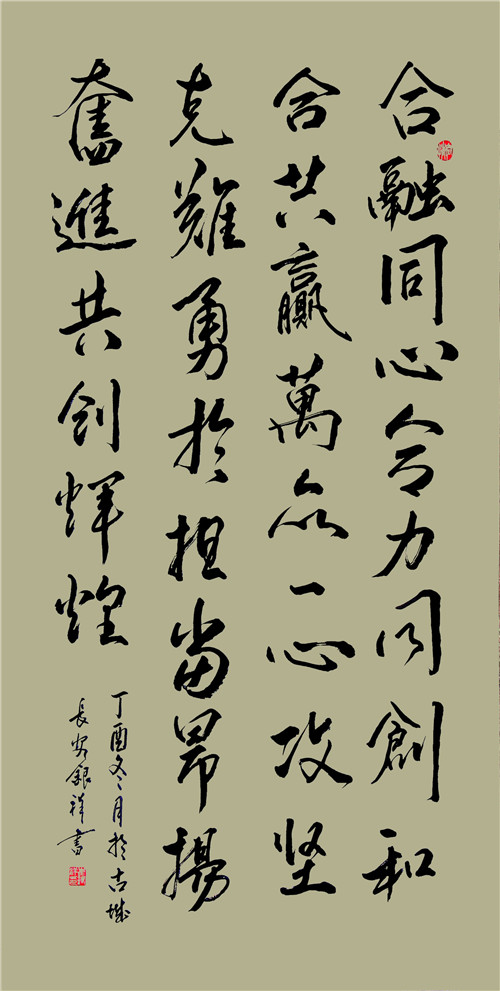 合融同心合力同創和
合共贏萬众一心攻坚
克難勇於担當昂揚
奮進共创煇煌
丁酉冬月於古城
長安銀祥書